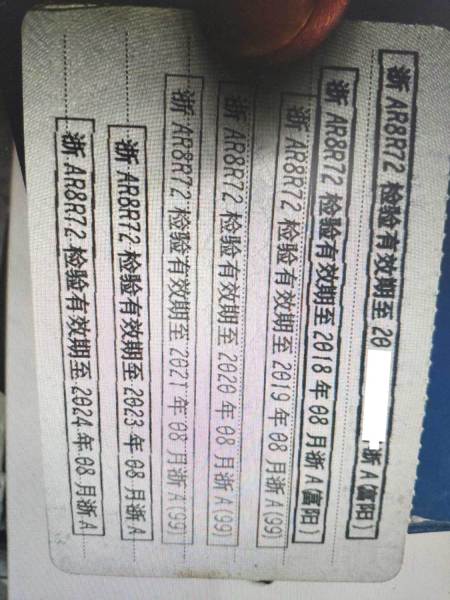 浙AR8R72 检验有效期至20 浙A(富阳)
浙AR8R72 检验有效期至2018年08月浙A(富阳)
浙AR8R72 检验有效期至2019年08月浙A(99)
浙AR8R72 检验有效期至2020年08月浙A(99)
浙AR8R72 检验有效期至2021年08月浙A(99)
浙AR8R72 检验有效期至2023年08月浙A
浙AR8R72 检验有效期至2024年08月浙A